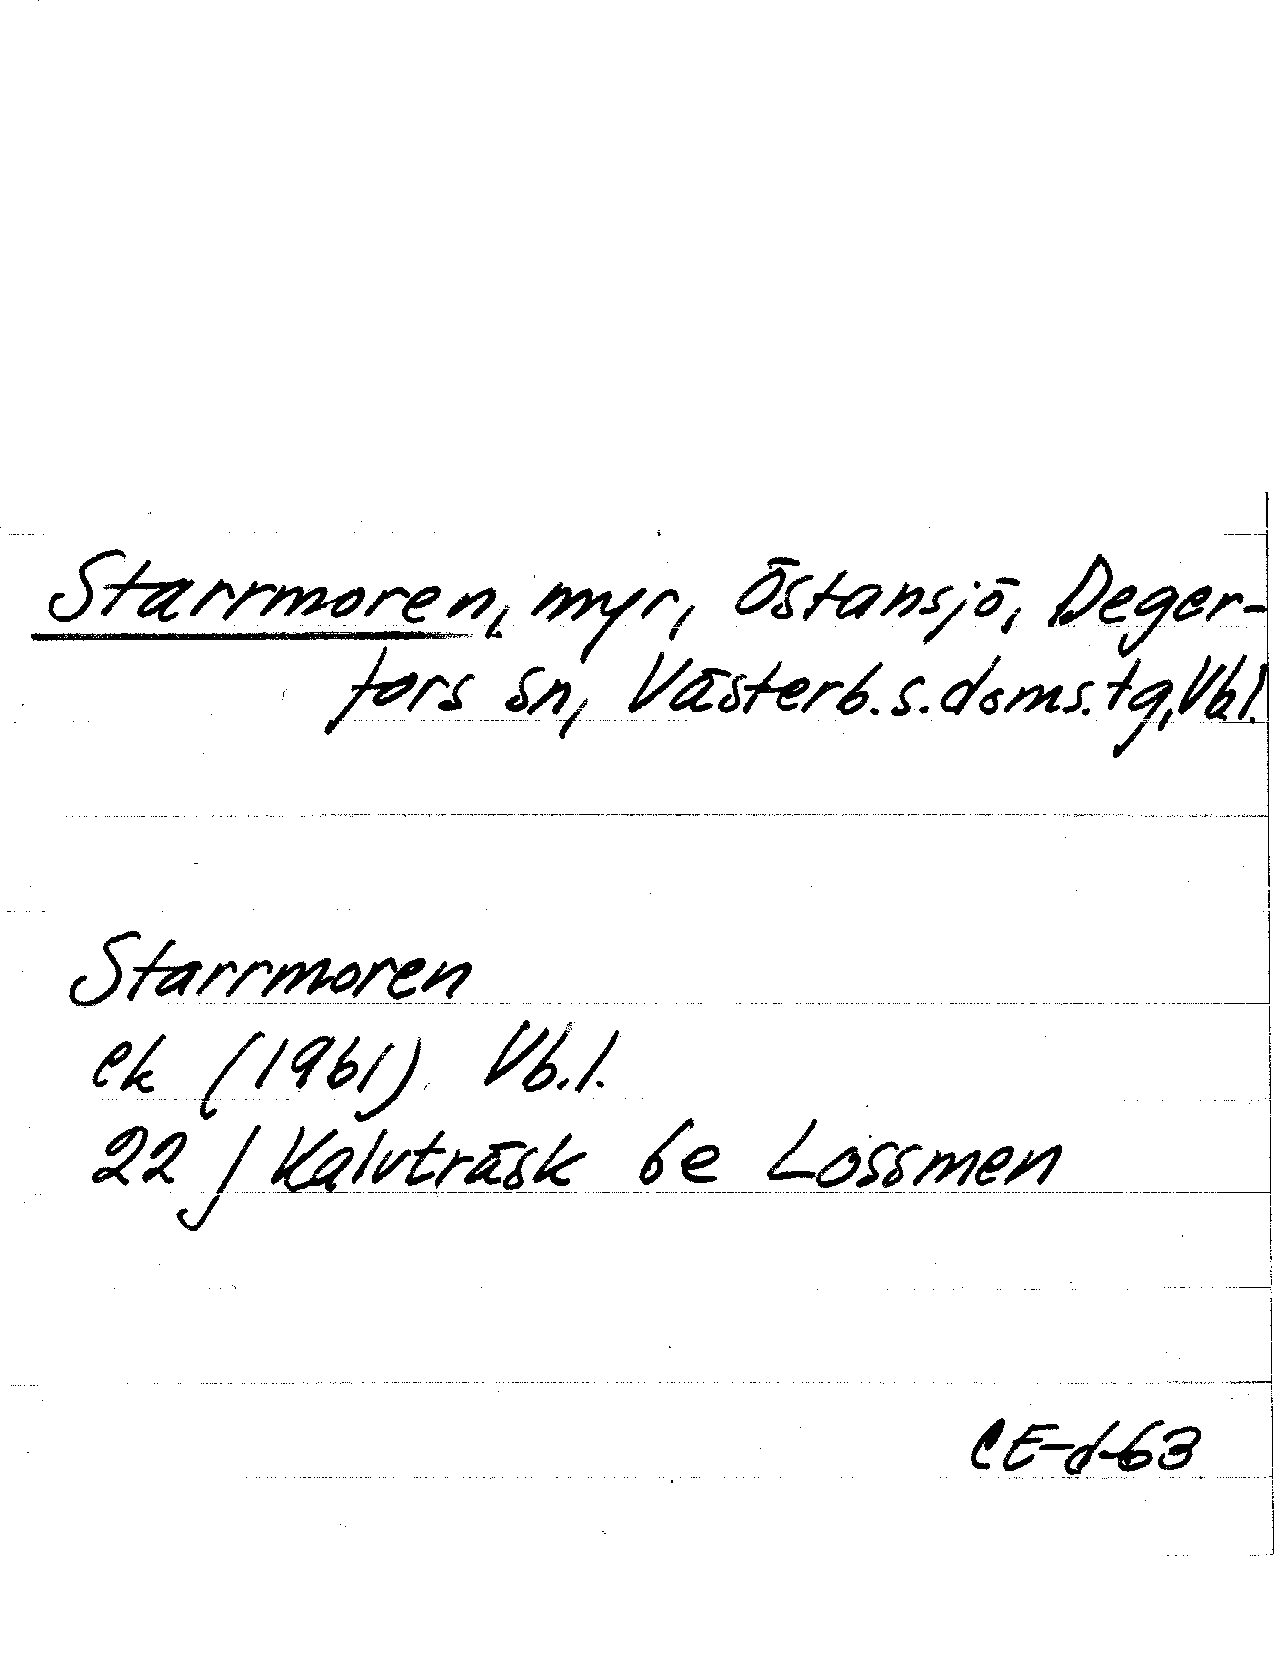 Starrmoren, myr, Östansjö, Deger-
fors sn, Västerb.s.doms.tg, Vb.l.
Starrmoren
ek (1961) Vb.l.
22 J Kalvträsk 6e Lossmen
CE-d-63